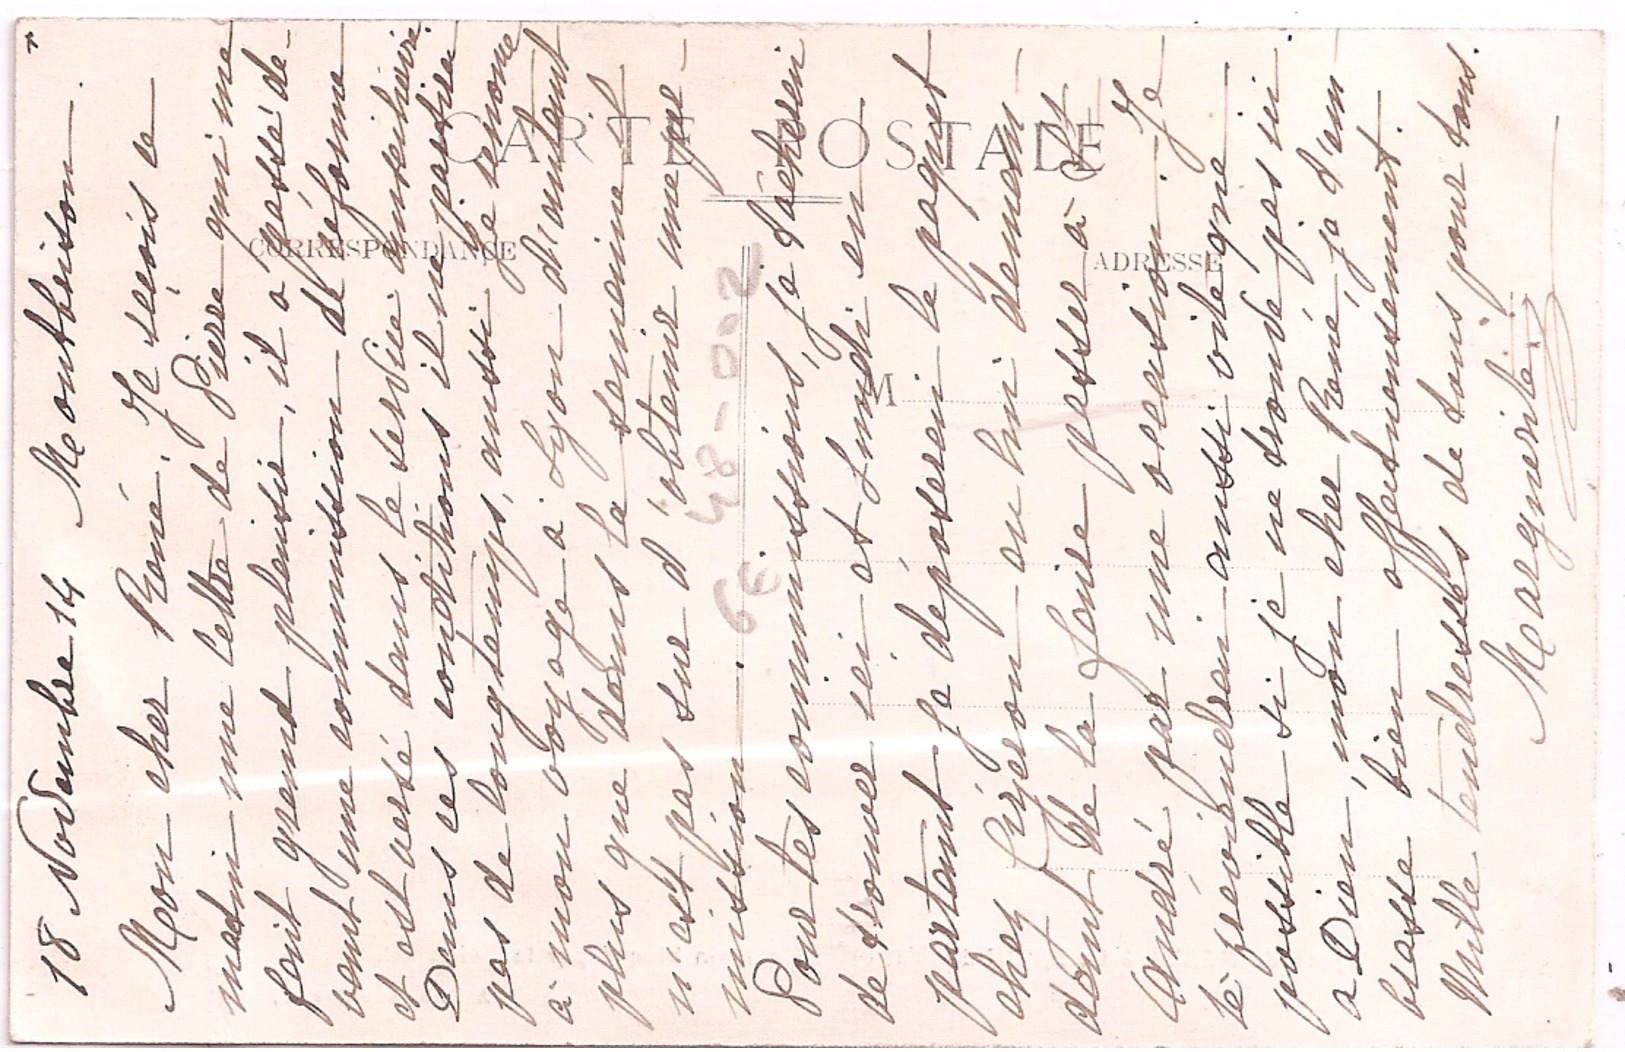 18 Novembre 14 Montbrison.
Mon cher René, Je reçois ce
matin une lettre de Pierre qui me
fait grand plaisir, il a passé de-
vant une commission de réforme
et est versé dans le service auxiliaire.
Dans ces conditions il ne partira
pas de longtemps, aussi je renonce
à mon voyage à Lyon d'autant
plus que dans la semaine il
n'est pas sur d'obtenir une per-
mission.
Pour tes commissions, je tâcherai
de trouver ici et Lundi en
partant je déposerai le paquet
chez Cizeron en lui deman-
dant de la faire passer à
André par une occasion. Je
te préviendrai aussi vite que
possible si je ne trouve pas ici
a Dieu, mon cher René, je t'em-
brasse bien affectueusement.
Mille tendresses de tous pour tous.
Marguerite
CARTE POSTALE
CORRESPONDANCE
ADRESSE
M
6€ 48-002